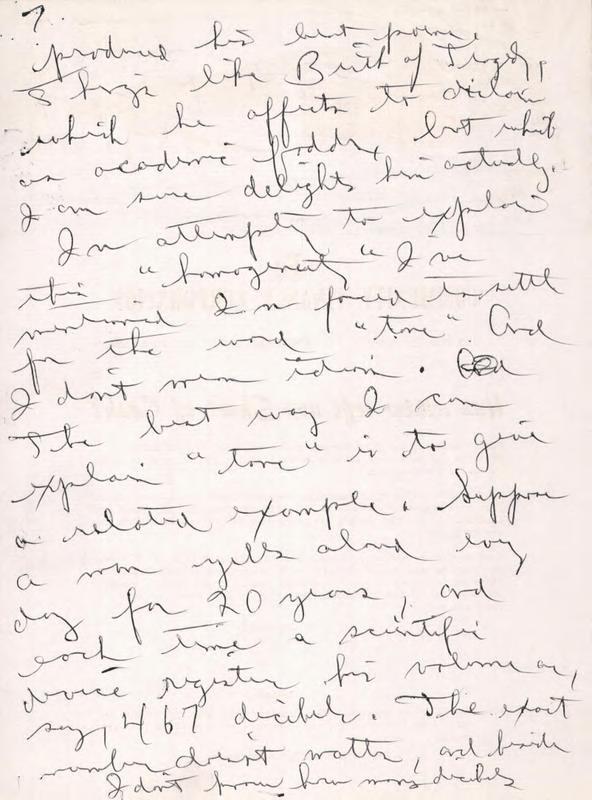 7
produced his best poems.
Things like Birth of Tragedy,
which he affects to disdain
as academic fodder, but which
I am sure delights him actually.
In attempting to explain
this "homogeneity" I've
mentioned I'm forced to settle
for the word "tone". And
I don't mean idiom.
The best way I can
explain "tone" is to give
a related example. Suppose
a man yells aloud every
day for 20 years, and
each time a scientific
device registers his volume as,
say, 467 decibels. The exact
number doesn't matter, and beside
I don't know how many decibels